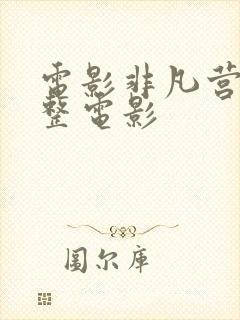 電影非凡营
整電影
圖尔库